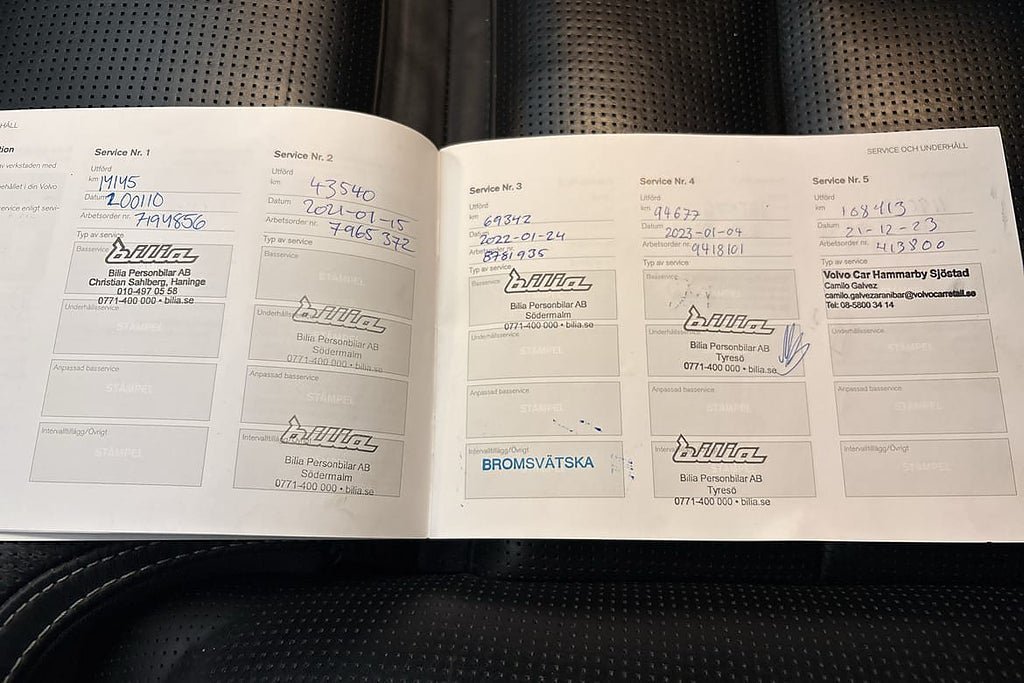 HÅLL
tion
av verkstaden med
ehållet i din Volvo
ervice enligt servi-
Service Nr. 1
Utförd
km 14145
Datum 200110
Arbetsorder nr. 7194856
Typ av service
Basservice
bilia
Bilia Personbilar AB
Christian Sahlberg, Haninge
010-497 05 58
0771-400 000 • bilia.se
Underhållsservice
STÄMPEL
Anpassad basservice
STÄMPEL
Intervalltillägg/Övrigt
STÄMPEL
Service Nr. 2
Utförd
km 43540
Datum 2021-01-15
Arbetsorder nr. 7965 372
Typ av service
Basservice
STÄMPEL
bilia
Bilia Personbilar AB
Södermalm
0771-400 000 • bilia.se
Anpassad basservice
STÄMPEL
bilia
Bilia Personbilar AB
Södermalm
0771-400 000 • bilia.se
Service Nr. 3
Utförd
km 69342
Datum 2022-01-24
Arbetsorder nr. 8781935
Typ av service
Basservice
bilia
Bilia Personbilar AB
Södermalm
0771-400 000 • bilia.se
Underhållsservice
STÄMPEL
Anpassad basservice
STÄMPEL
Intervalltillägg/Övrigt
BROMSVÄTSKA
SERVICE OCH UNDERHÅLL
Service Nr. 4
Utförd
km 94677
Datum 2023-01-04
Arbetsorder nr. 9418101
Typ av service
Basservice
bilia
Bilia Personbilar AB
Tyresö
0771-400 000 • bilia.se
Anpassad basservice
STÄMPEL
bilia
Bilia Personbilar AB
Tyresö
0771-400 000 • bilia.se
Service Nr. 5
Utförd
km 108413
Datum 21-12-23
Arbetsorder nr. 413800
Typ av service
Volvo Car Hammarby Sjöstad
Camilo Galvez
camilo.galvezaranibar@volvocarretail.se
Tel: 08-5800 34 14
Underhållsservice
STÄMPEL
Anpassad basservice
STÄMPEL
Intervalltillägg/Övrigt
STÄMPEL